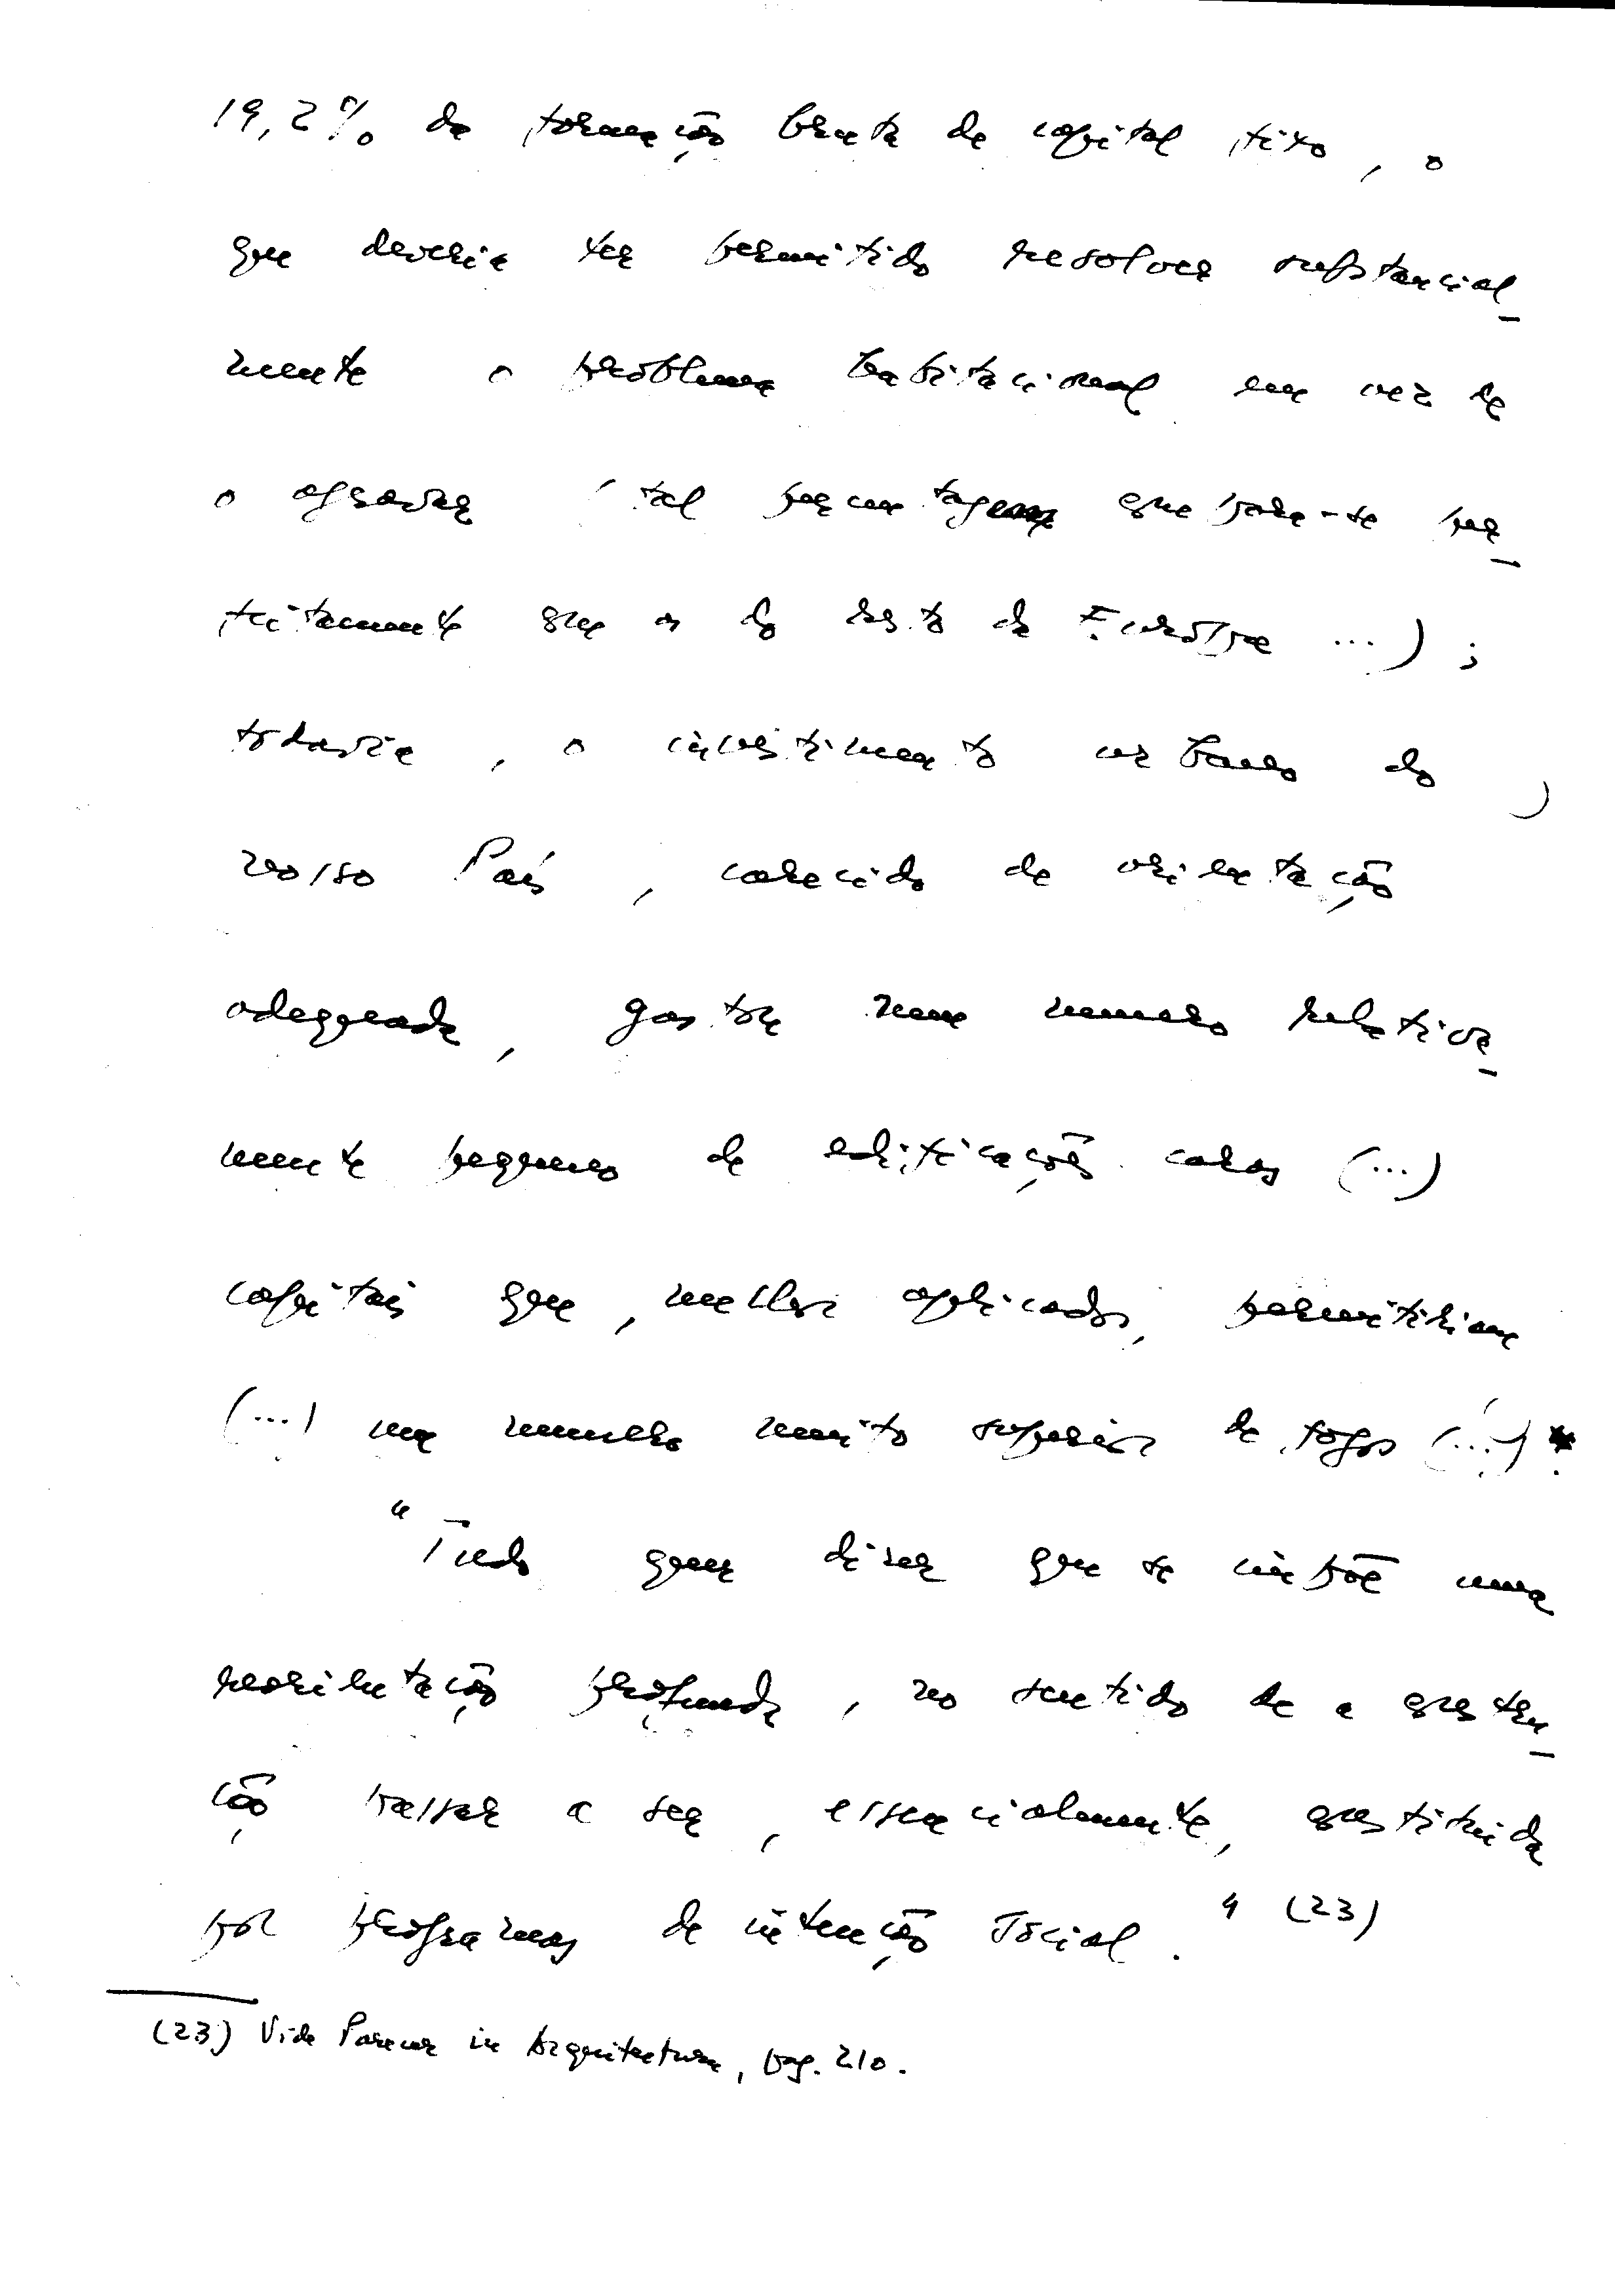 19,2% da formação bruta de capital fixo, o
que deveria ter permitido resolver substancial_
mente o problema habitacional em vez de
o agravar (tal percentagem equipara-se per_
feitamente que a do resto da Europa ...) ;
todavia, o investimento urbano do
nosso País, carecido de orientação
adequada, gasta num numero relativa_
mente pequeno de edificações caras (...)
capitais que, melhor aplicados, permitiriam
(...) um numero muito superior de fogos (...)
"Tudo quer dizer que se impõe uma
reorientação profunda, no sentido de a
ção passar a ser, essencialmente,
por programas de intenção social." (23)
(23) Vide Parecer in Arquitectura, pag. 210.